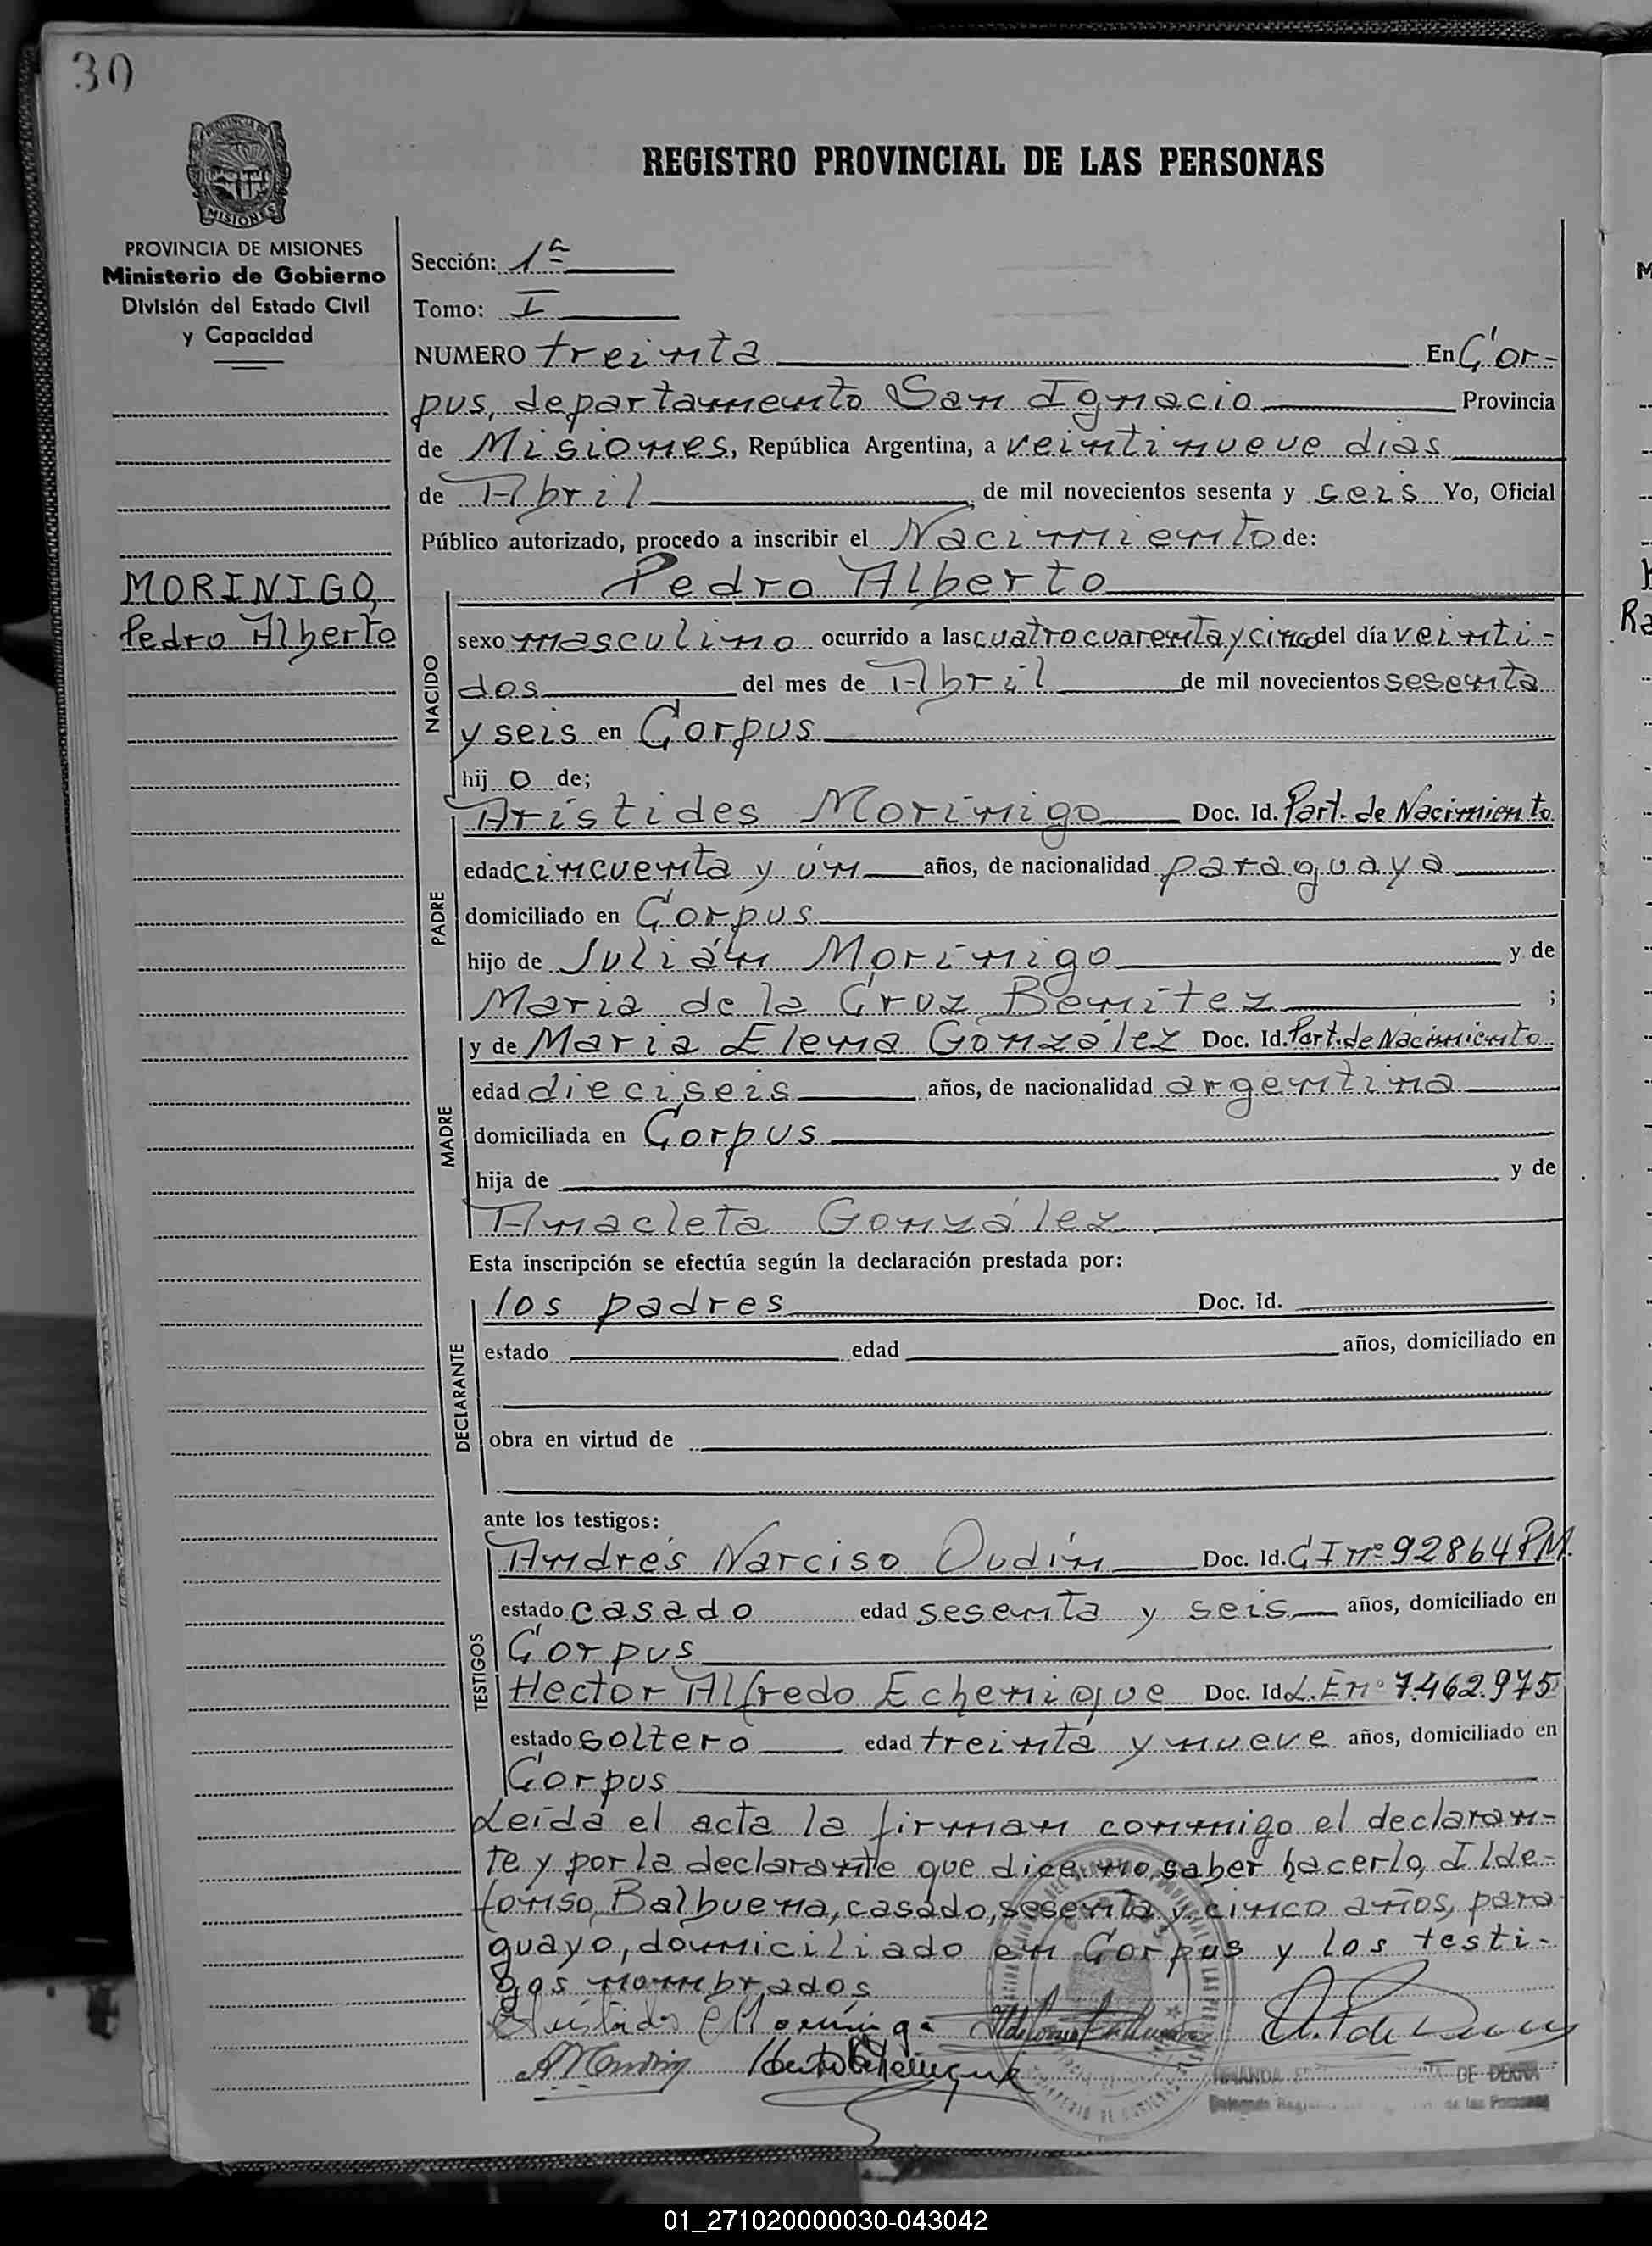 30
PROVINCIA DE
MISIONES
REGISTRO PROVINCIAL DE LAS PERSONAS
PROVINCIA DE MISIONES
Ministerio de Gobierno
División del Estado Civil
y Capacidad
Sección: 1ª
Tomo: I
NUMERO treinta En Cor-
pus, departamento San Ignacio Provincia
de Misiones, República Argentina, a veintinueve dias
de Abril de mil novecientos sesenta y seis Yo, Oficial
Público autorizado, procedo a inscribir el Nacimiento de:
MORINIGO,
Pedro Alberto
NACIDO
Pedro Alberto
sexo masculino ocurrido a las cuatro cuarenta y cinco del día veinti-
dos del mes de Abril de mil novecientos sesenta
y seis en Corpus
hij o de;
PADRE
Arístides Morínigo Doc. Id. Part. de Nacimiento
edad cincuenta y ún años, de nacionalidad paraguaya
domiciliado en Corpus
hijo de Julián Morínigo y de
Maria de la Cruz Benítez ;
MADRE
y de Maria Elena González Doc. Id. Part. de Nacimiento
edad dieciseis años, de nacionalidad argentina
domiciliada en Corpus
hija de y de
Anacleta González
Esta inscripción se efectúa según la declaración prestada por:
DECLARANTE
los padres Doc. Id.
estado edad años, domiciliado en
obra en virtud de
ante los testigos:
TESTIGOS
Andrés Narciso Oudín Doc. Id. C I nº 92864 PM.
estado casado edad sesenta y seis años, domiciliado en
Corpus
Hector Alfredo Echenique Doc. Id. L.E nº 7.462.975
estado soltero edad treinta y nueve años, domiciliado en
Corpus
Leída el acta la firman conmigo el declaran-
te y por la declarante que dice no saber hacerlo, Ilde-
fonso Balbuena, casado, sesenta y cinco años, para
guayo, domiciliado en Corpus y los testi-
gos nombrados
DE DERNA
de las Personas
01_271020000030-043042